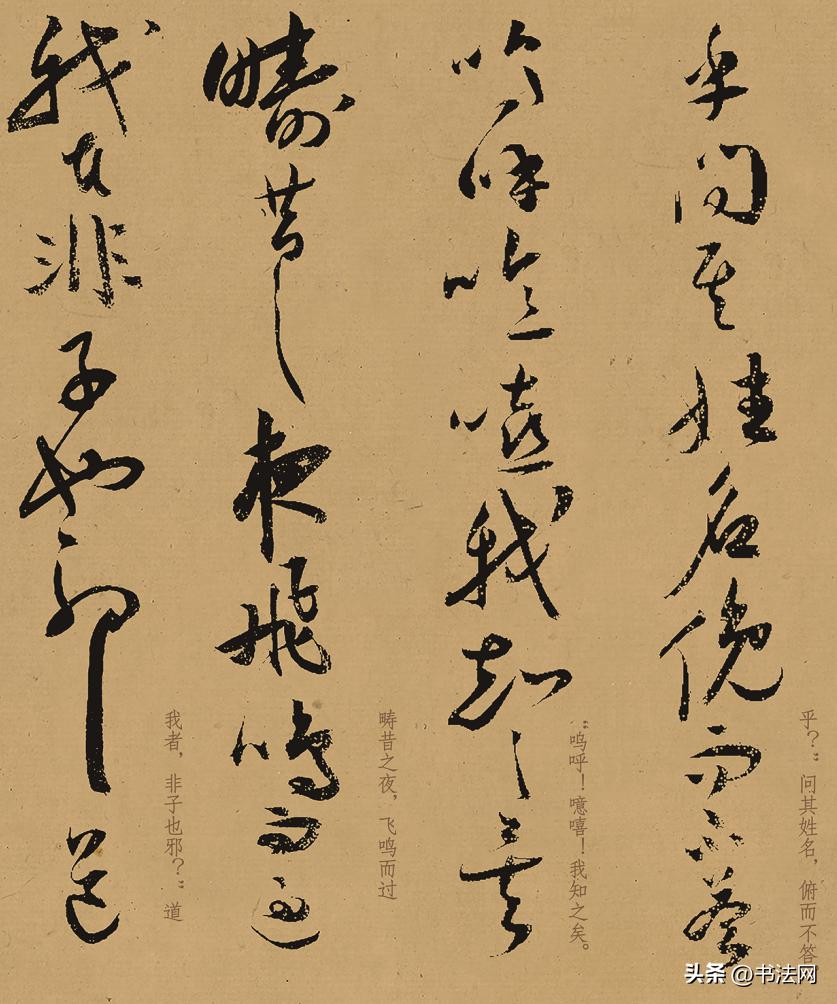 乎問其姓名俛而不荅
乎？” 问其姓名，俯而不答
嗚呼噫嘻我知之矣
“呜呼！噫嘻！我知之矣。
疇昔之夜飛鳴而過
畴昔之夜，飞鸣而过
我者非子也邪道
我者，非子也邪？” 道
头条 @书法网